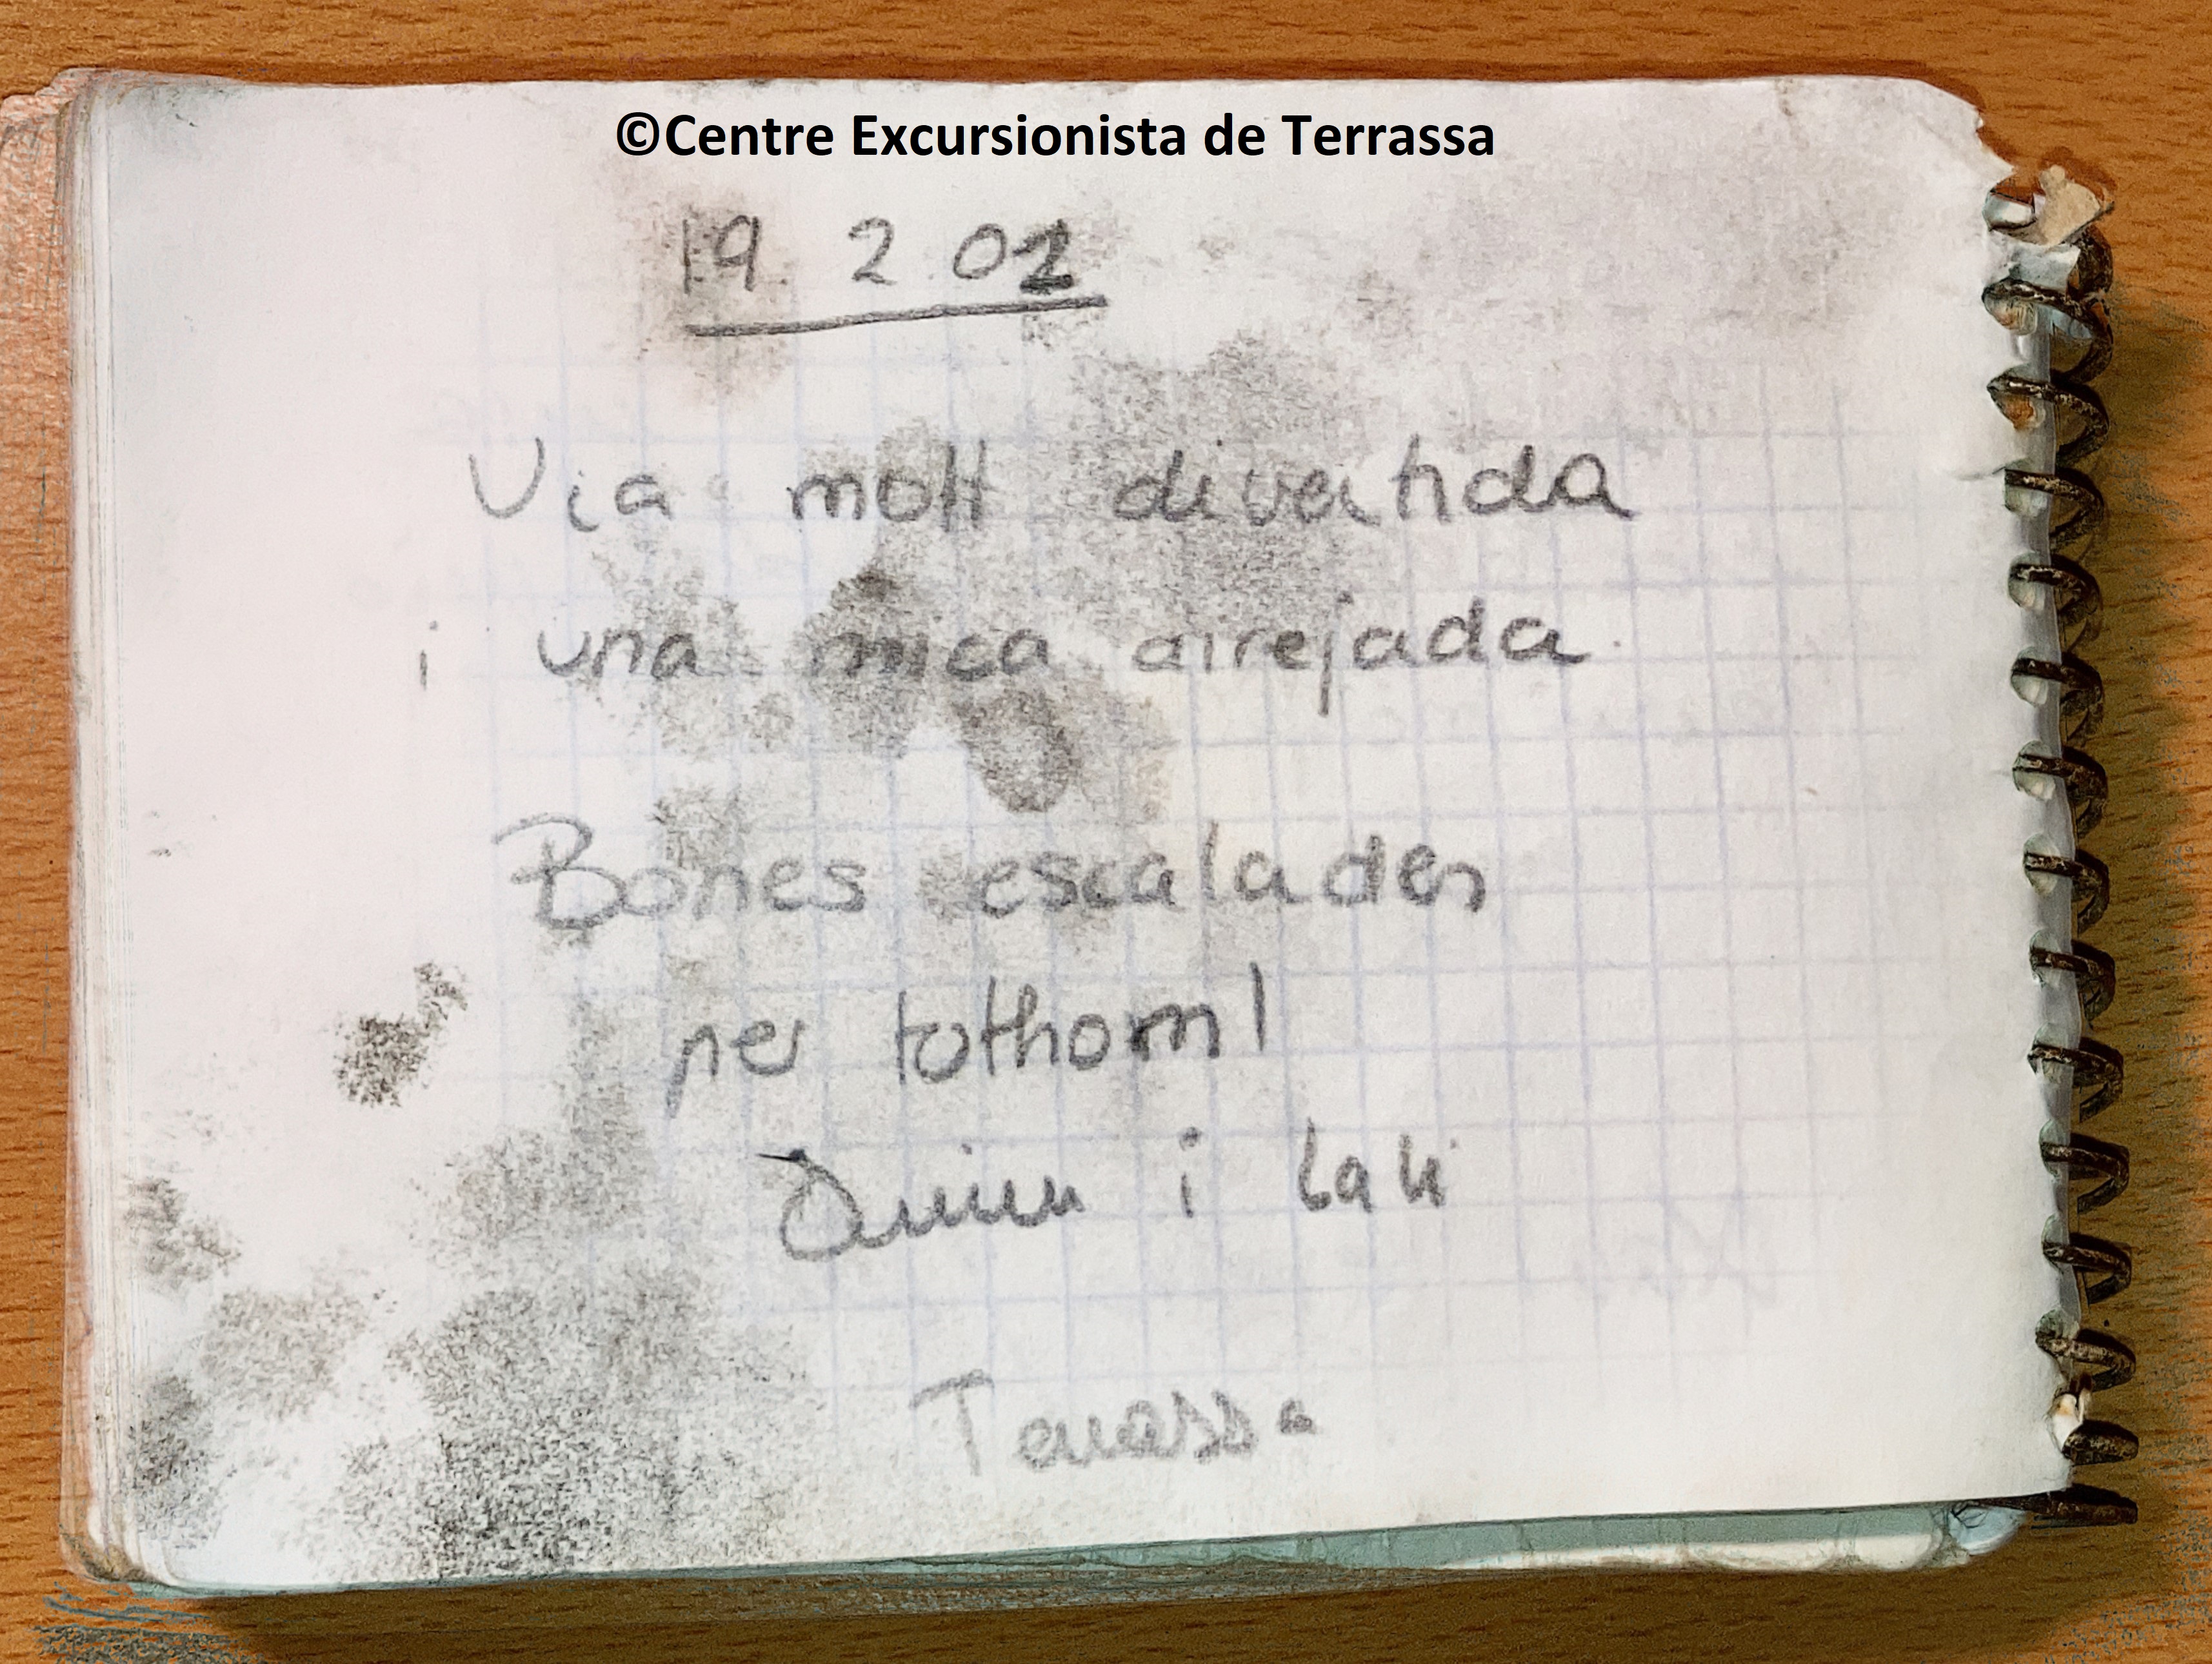 ©Centre Excursionista de Terrassa
19. 2 02
Via molt divertida
i una mica airejada.
Bones escalades
per tothom!
Quim i Lali
Terrassa